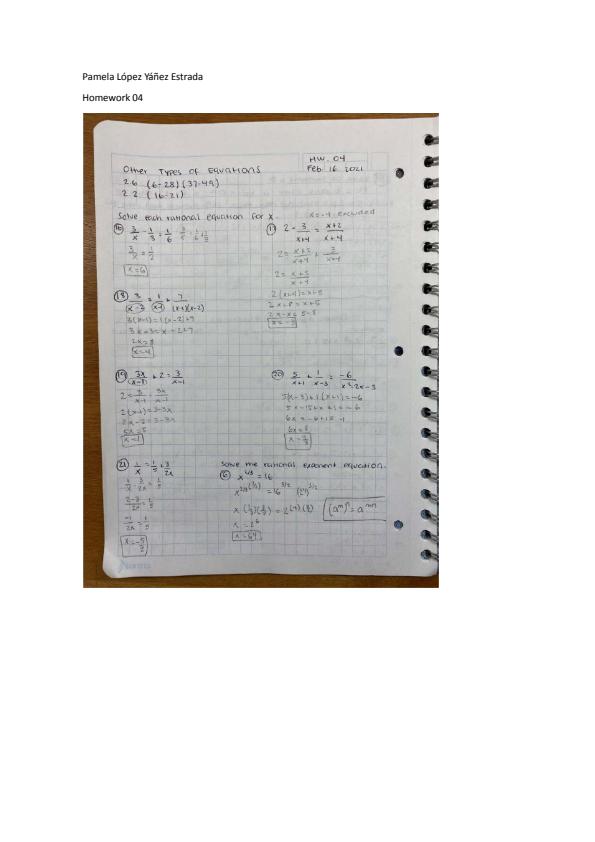 Pamela López Yáñez Estrada
Homework 04
HW. 04
Feb 16 2021
Other Types of Equations
2.6 (6-28) (37-49)
2.2 (16-21)
Solve each rational equation for x.
x=-4 excluded
16) 3/x - 1/3 = 1/6
3/x = 1/2
x=6
17) 2 - 3/x+4 = x+2/x+4
2 = x+2/x+4 + 3/x+4
2 = x+5/x+4
2(x+4)=x+5
2x+8=x+5
2x-x=5-8
x=-3
18) 3/x-2 = 1/x-1 + 7/(x-1)(x-2)
3(x-1)=1(x-2)+7
3x-3=x-2+7
2x=8
x=4
19) 3x/x-1 + 2 = 3/x-1
2 = 3/x-1 - 3x/x-1
2(x-1)=3-3x
2x-2=3-3x
5x=5
x=1
20) 5/x+1 + 1/x-3 = -6/x²-2x-3
5(x-3)+1(x+1)=-6
5x-15+x+1=-6
6x=8
21) 1/x = 1/5 + 3/2x
1/x - 3/2x = 1/5
2-3/2x = 1/5
-1/2x = 1/5
x=-5/2
Solve the rational exponent equation.
6) x^2/3 = 16
(a^m)^n = a^mn
x = 2^6
x=64
norma